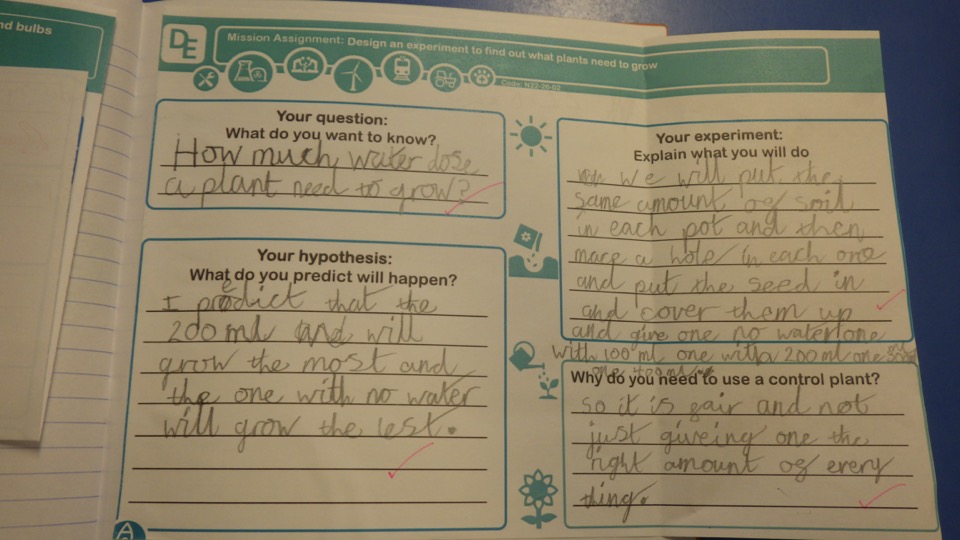 nd bulbs
DE
Mission Assignment: Design an experiment to find out what plants need to grow
Your question:
What do you want to know?
How much water dose
a plant need to grow?
Your hypothesis:
What do you predict will happen?
I predict that the
200ml will
grow the most and
the one with no water
will grow the lest.
Your experiment:
Explain what you will do
we will put the
same amount of soil
in each pot and then
mace a hole in each one
and put the seed in
and cover them up
and give one no water one
with 100 ml one with 200ml one
one 400ml
Why do you need to use a control plant?
so it is fair and not
just giveing one the
right amount of every
thing.